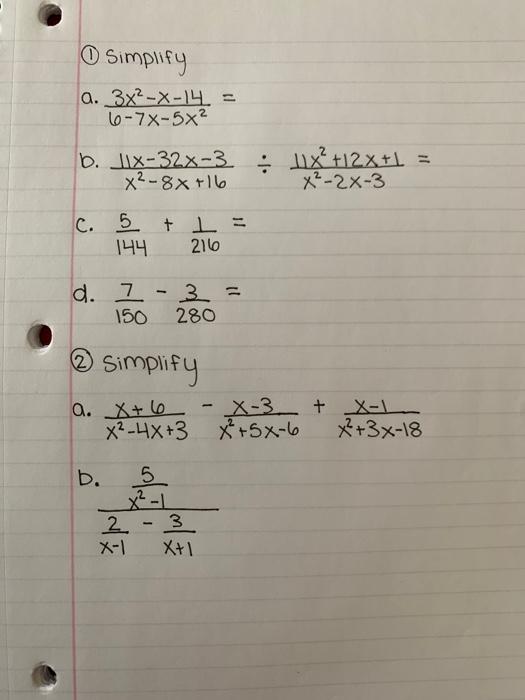 ① Simplify
a. 3x²-x-14 =
6-7x-5x²
b. 11x-32x-3 ÷ 11x²+12x+1 =
x²-8x+16 x²-2x-3
c. 5 + 1 =
144 216
d. 7 - 3 =
150 280
② Simplify
a. x+6 - x-3 + x-1
x²-4x+3 x²+5x-6 x²+3x-18
b. 5
x²-1
2 - 3
x-1 x+1